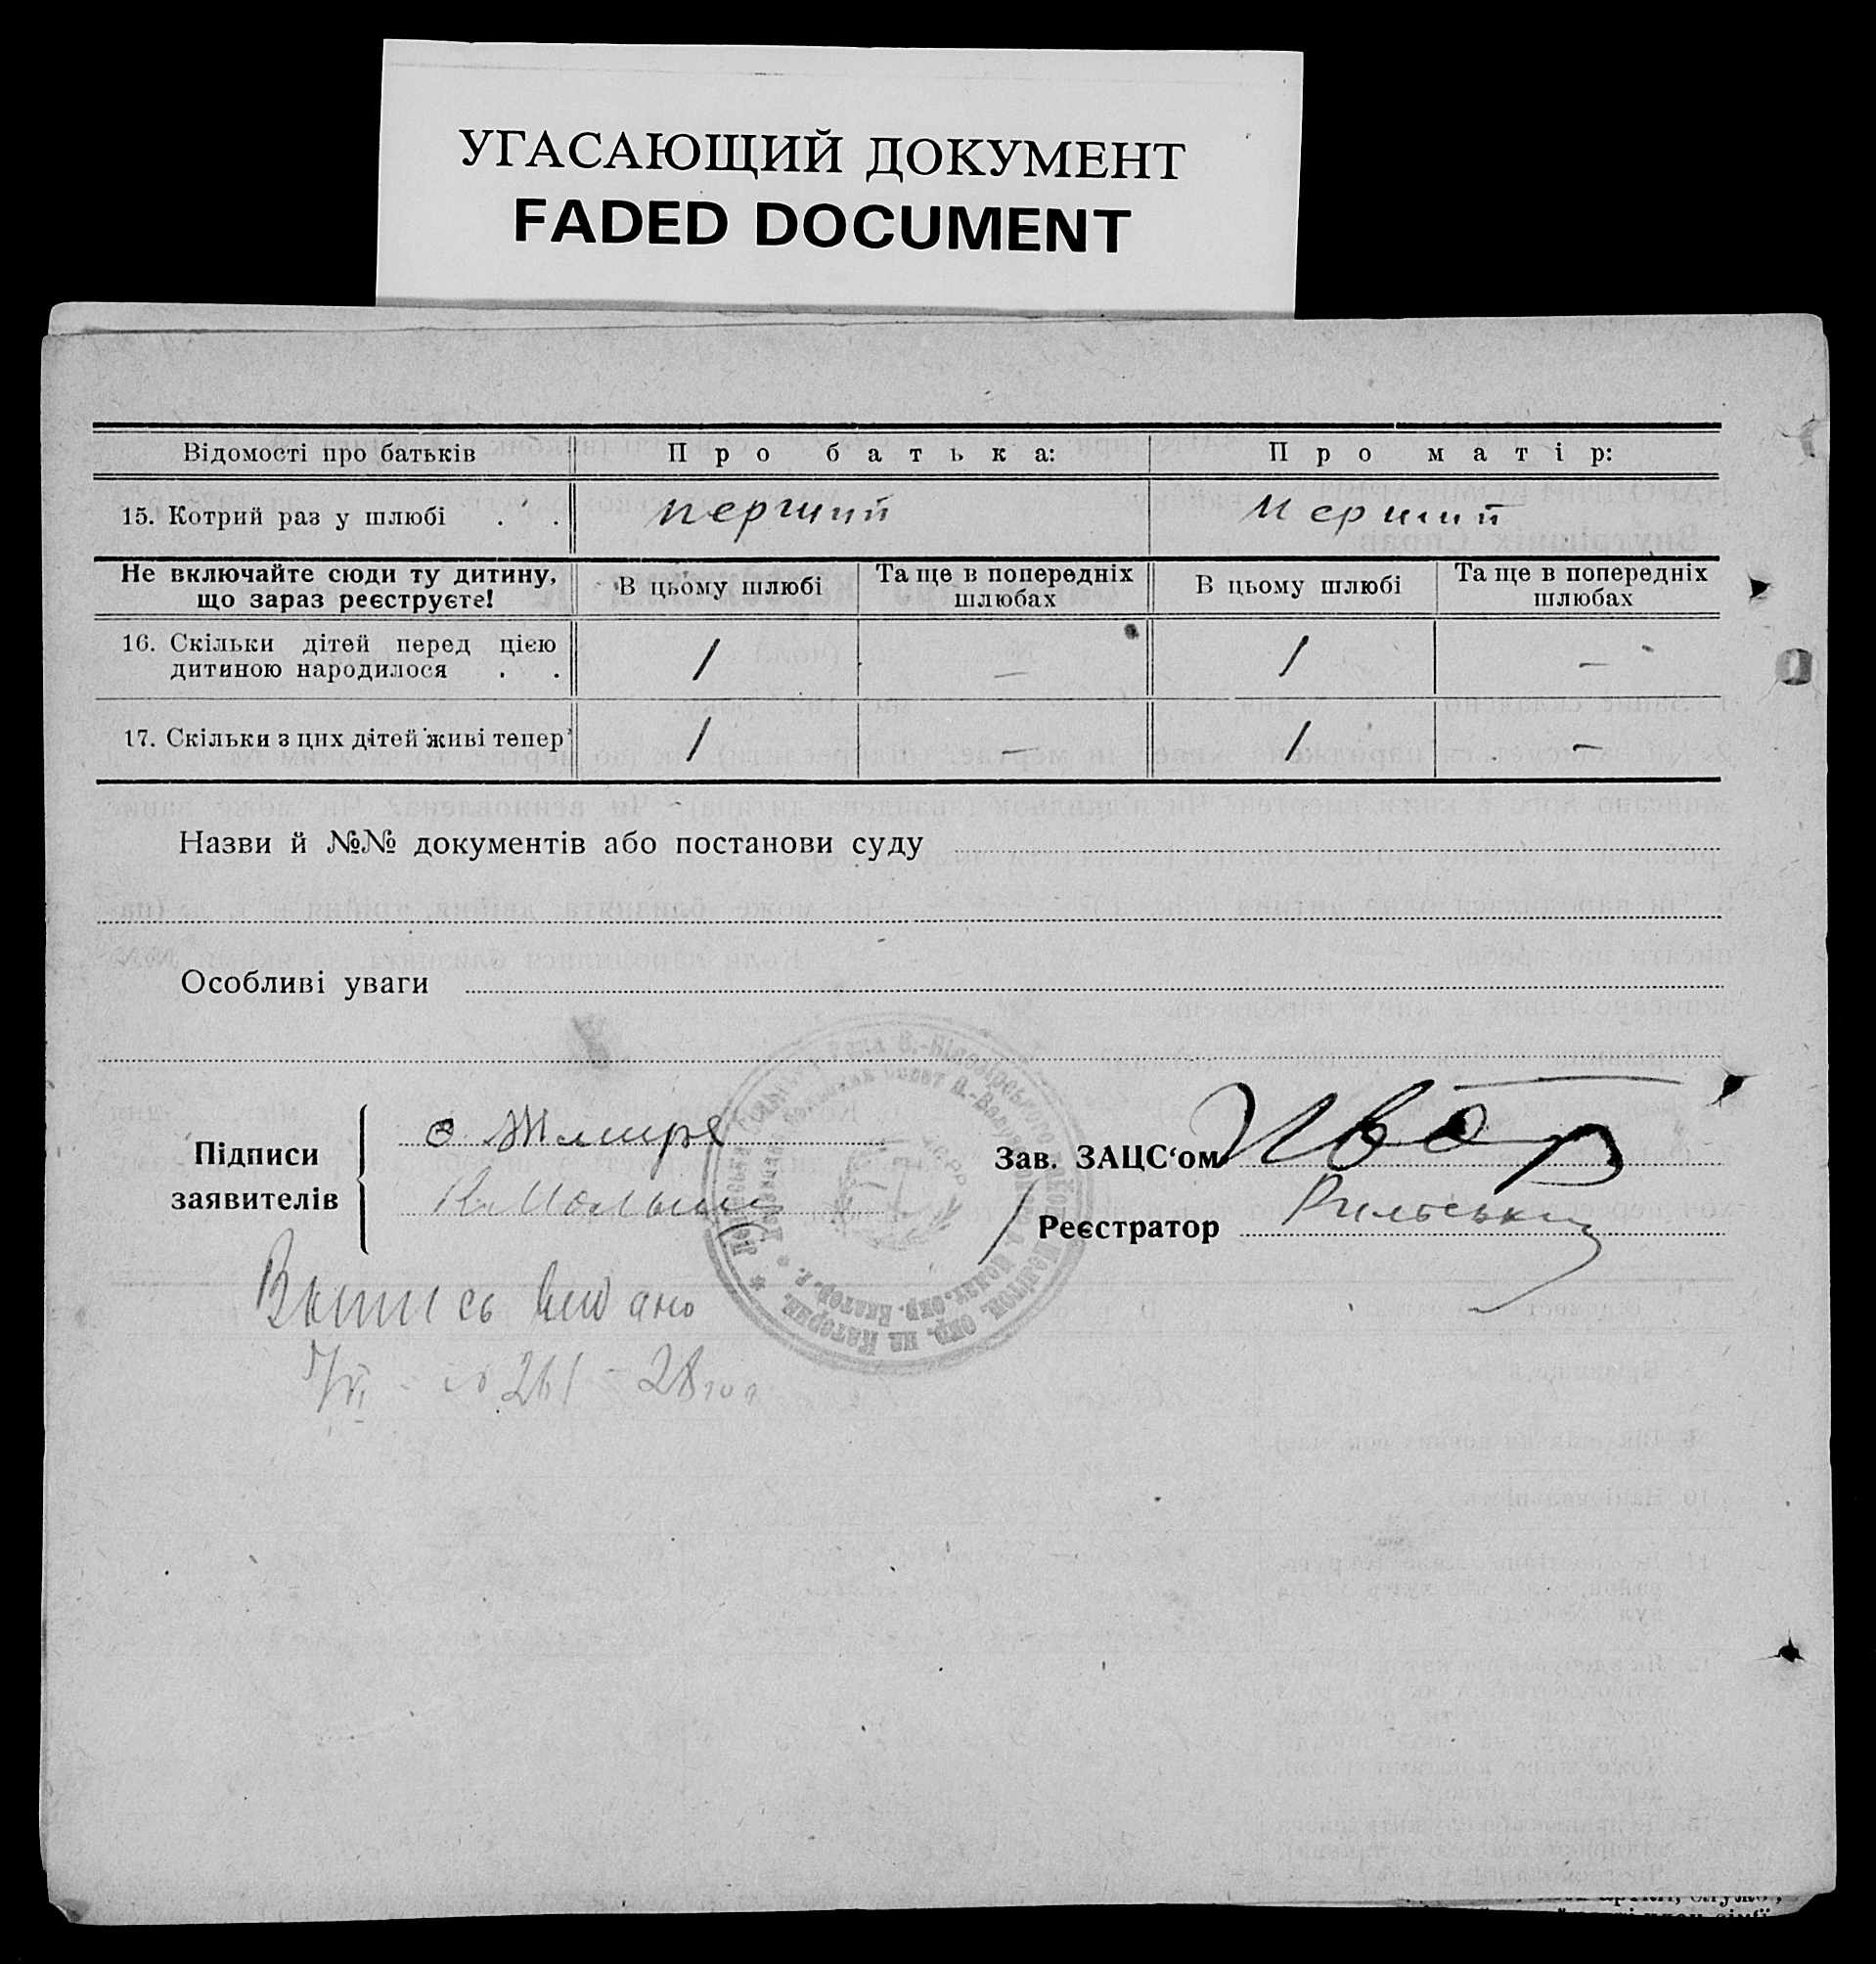 УГАСАЮЩИЙ ДОКУМЕНТ
FADED DOCUMENT
Відомості про батьків Про батька: Про матір:
15. Котрий раз у шлюбі . . перший перший
Не включайте сюди ту дитину, що зараз реєструєте! В цьому шлюбі Та ще в попередніх шлюбах В цьому шлюбі Та ще в попередніх шлюбах
16. Скільки дітей перед цією
дитиною народилося . . 1 — 1 —
17. Скільки з цих дітей живі тепер 1 — 1 —
Назви й №№ документів або постанови суду
Особливі уваги
Підписи
заявителів
Зав. ЗАЦС‘ом
Реєстратор Рильський
Выпись видано
№ 261 - 28